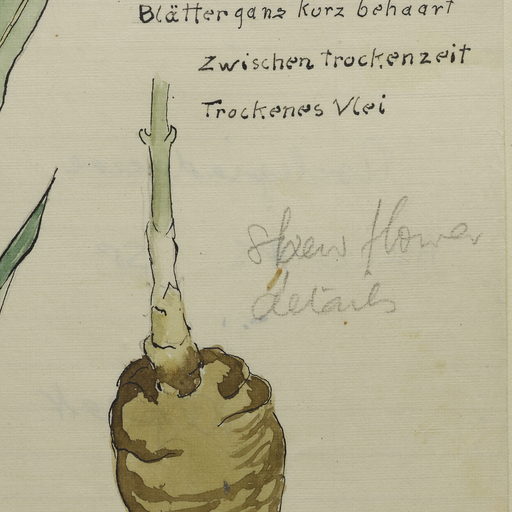 Blätter ganz kurz behaart
Zwischen Trockenzeit
Trockenes Vlei
flower
details